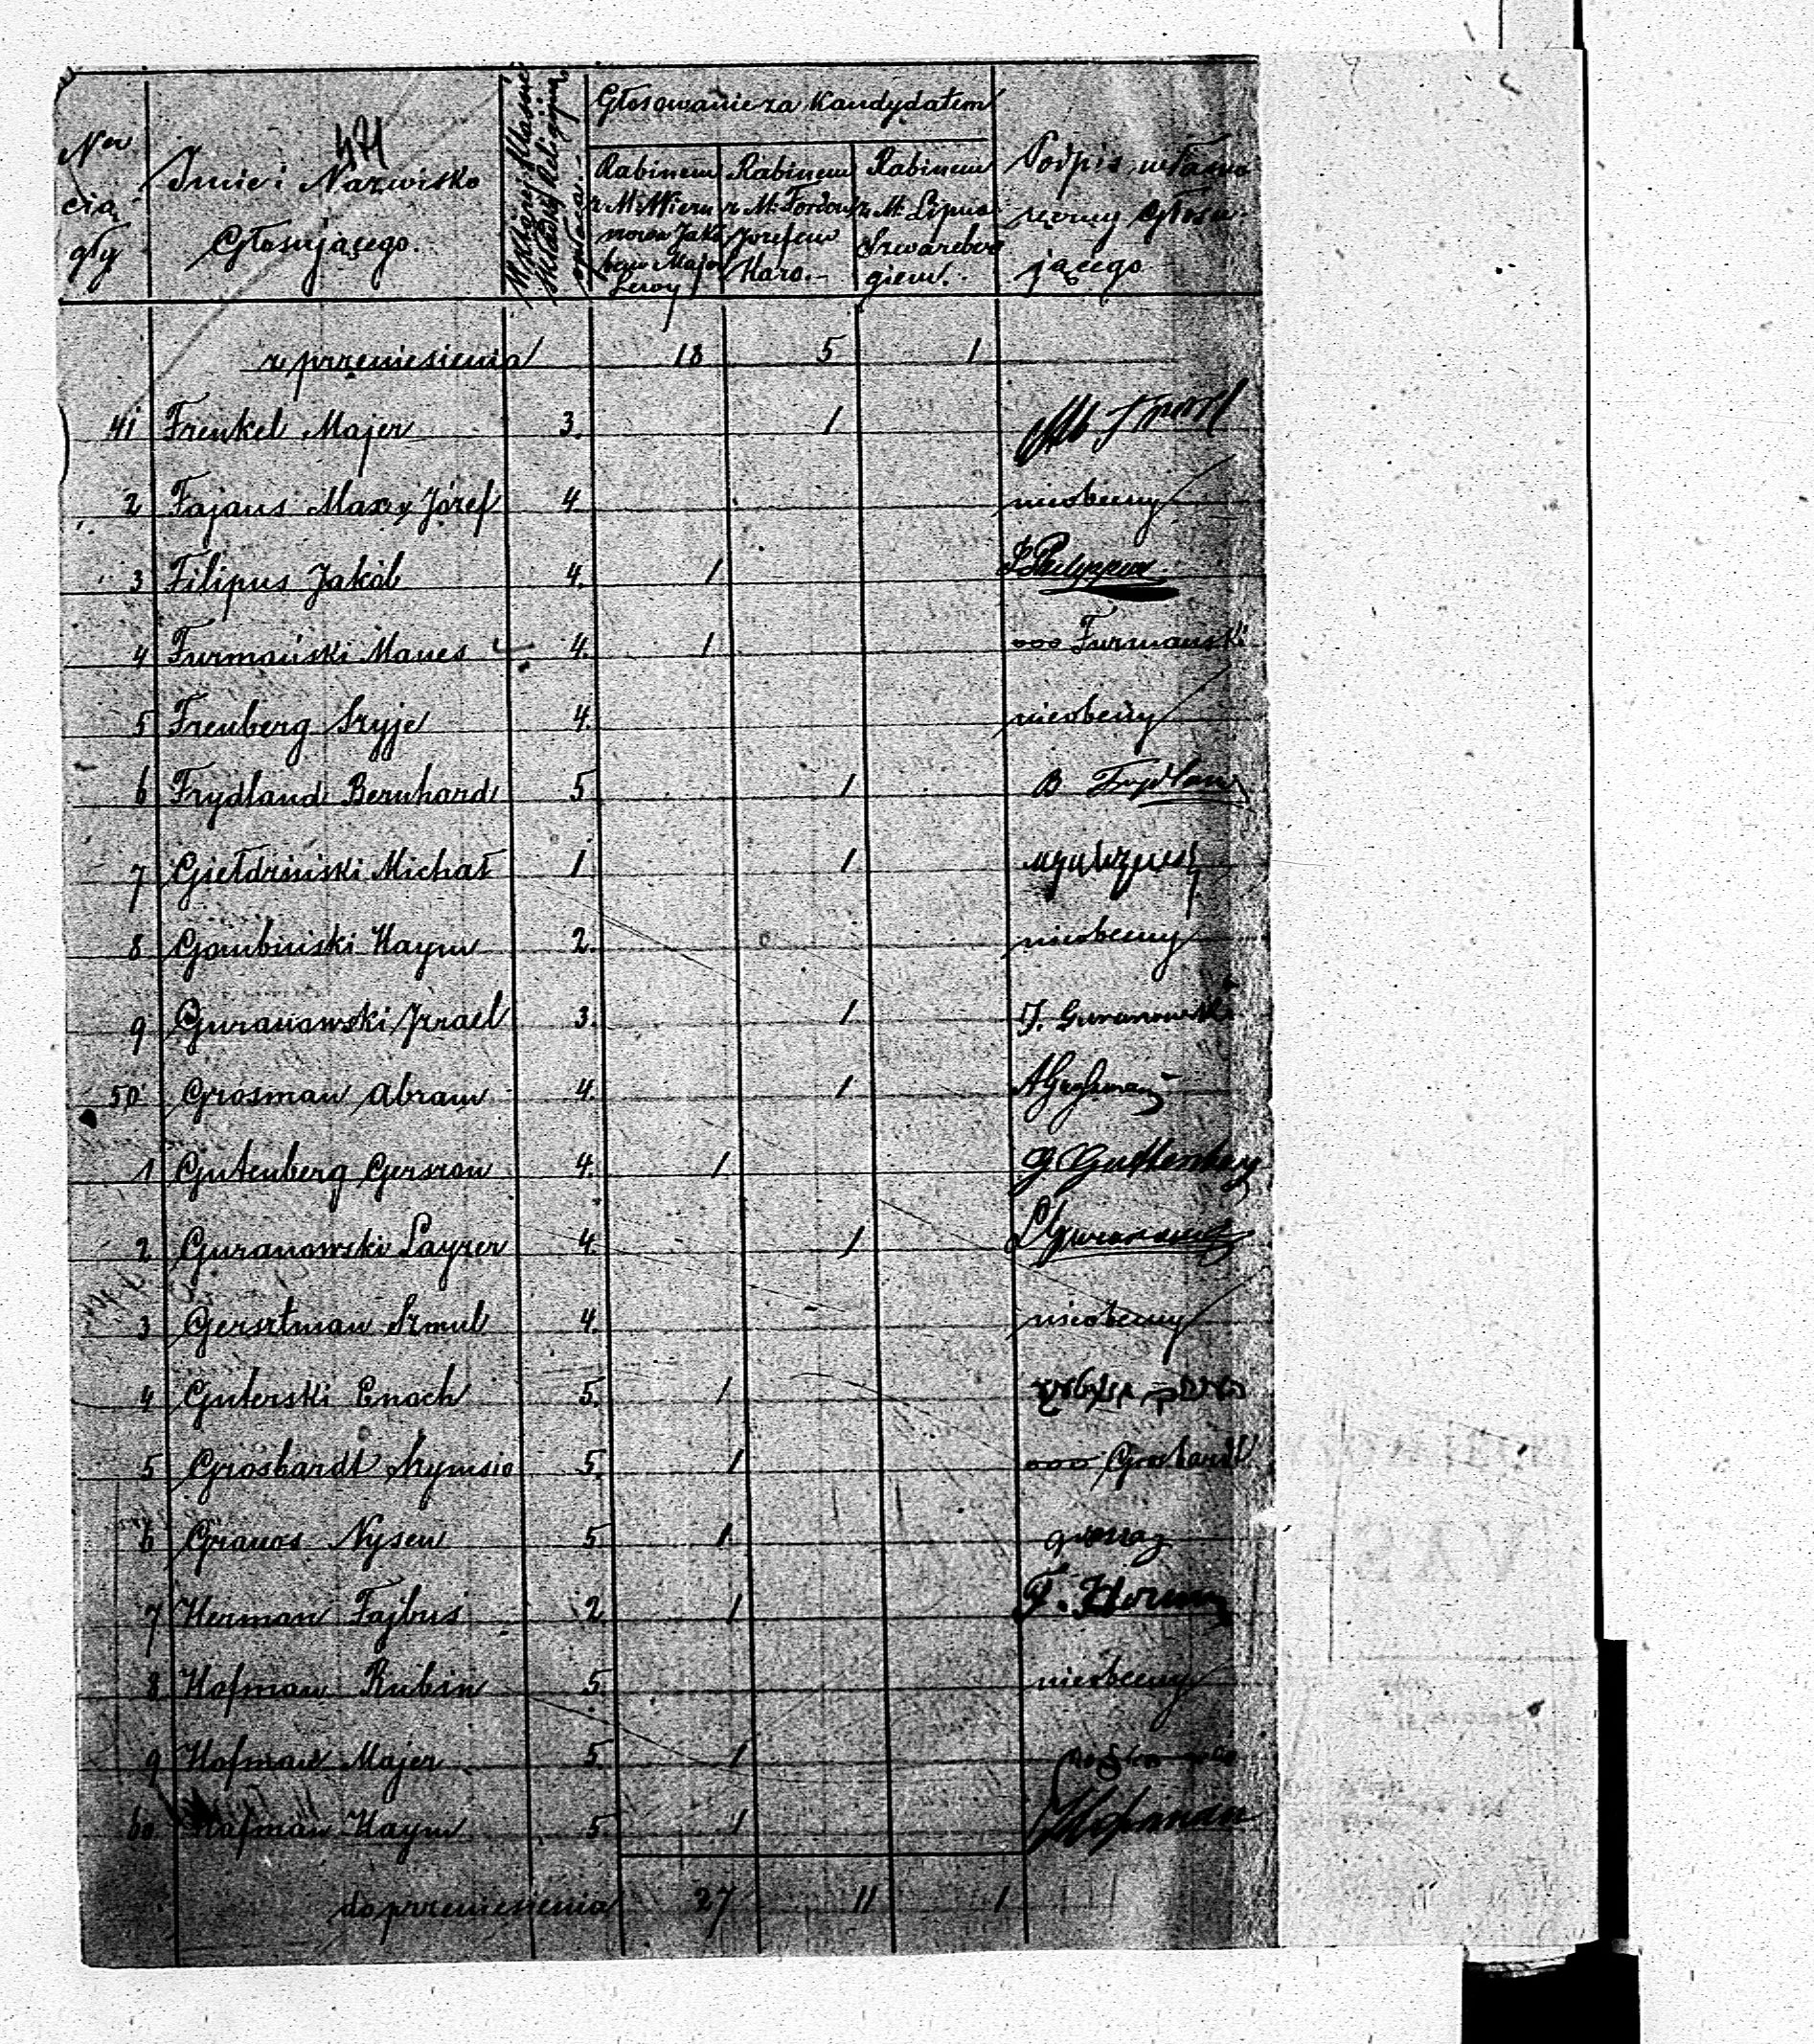 471
Ner cią gły
Imie i Nazwisko Głosującego.
W której Klassie Składkę Religijną opłaca.
Głosowanie za Kandydatem
Rabinem z M. Jakóbem Majer
Rabinem z M. Fordonu Józefem Karo.
Rabinem z M. Lipna Szwarcbergiem.
Podpis własno ręczny Głosu jącego
z przeniesienia 18 5 1
41 Frenkel Majer 3. 1
2 Fajans Maxy Józef 4. nieobecny
3 Filipus Jakób 4. 1
4 Furmański Manes 4. 1 ooo Furmanski
5 Frenberg Szyje 4. nieobecny
6 Frydland Bernhard 5 1 B Frydland
7 Giełdziński Michał 1 1
8 Gombiński Haym 2. nieobecny
9 Guranowski Izrael 3. 1 I. Guranowski
50 Grosman Abram 4. 1 A Grosman
1 Gutenberg Gerszon 4. 1 G Guttenberg
2 Guranowski Layzer 4. 1 L Guranowski
3 Gersztman Szmul 4. nieobecny
4 Guterski Enoch 5. 1
5 Grosbardt Szymsio 5. 1 ooo Grosbardt
6 Granos Nysen 5. 1
7 Herman Fajbus 2 1 F. Herman
8 Hofman Rubin 5. nieobecny
9 Hofman Majer 5. 1
60 Hofman Haym 5. 1 Hofman
do przeniesienia 27 11 1